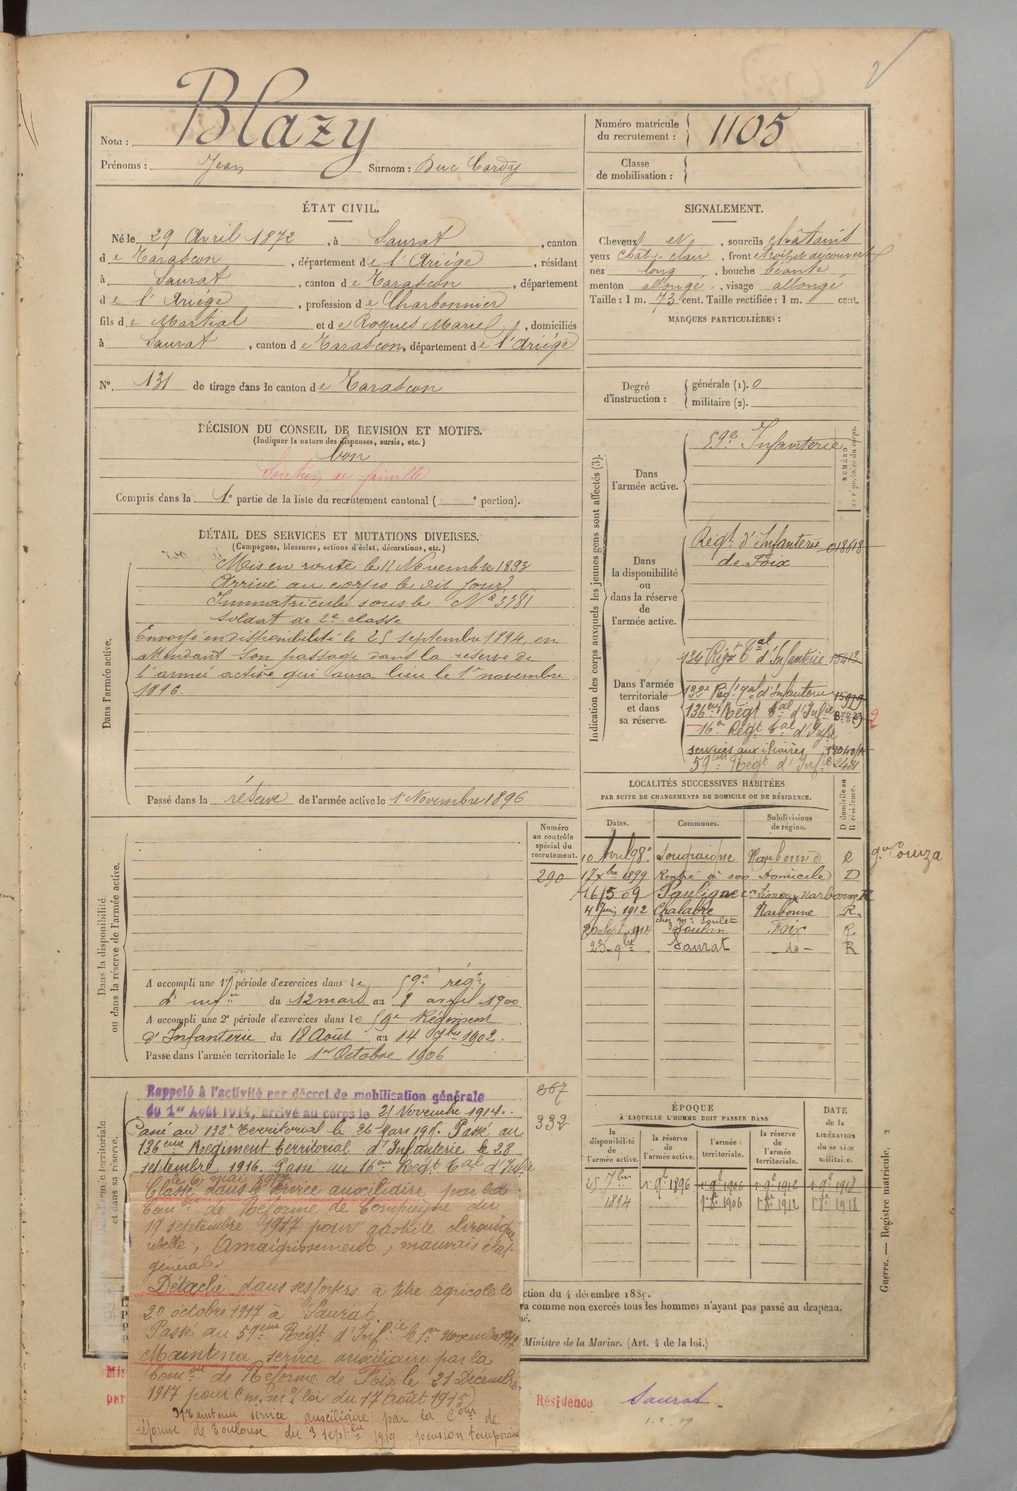 Nom : Blazy
Prénoms : Jean Surnom : Duc Cardy
Numéro matricule du recrutement : 1105
Classe de mobilisation :
ÉTAT CIVIL.
Né le 29 Avril 1872, à Saurat, canton
de Tarascon, département de l'Ariége, résidant
à Saurat, canton de Tarascon, département
de l'Ariége, profession de Charbonnier
fils de Martial et de Roques Marie, domiciliés
à Saurat, canton de Tarascon, département de l'Ariége
N° 131 de tirage dans le canton de Tarascon
SIGNALEMENT.
Cheveux et, sourcils châtains
yeux chat. clair, front étroit et découvert
nez long, bouche béante,
menton allongé, visage allongé
Taille : 1 m. 73 cent. Taille rectifiée : 1 m. cent.
MARQUES PARTICULIÈRES :
Degré d'instruction : générale (1). 0
militaire (2).
DÉCISION DU CONSEIL DE REVISION ET MOTIFS.
(Indiquer la nature des dispenses, sursis, etc.)
bon
Soutien de famille
Compris dans la 1e partie de la liste du recrutement cantonal ( e portion).
DÉTAIL DES SERVICES ET MUTATIONS DIVERSES.
(Campagnes, blessures, actions d'éclat, décorations, etc.)
Dans l'armée active.
Mis en route le 11 Novembre 1893
Arrivé au corps le dit jour
Immatriculé sous le N° 3381
Soldat de 2e classe
Envoyé en disponibilité le 25 septembre 1894, en
attendant son passage dans la réserve de
l'armée active qui aura lieu le 1er novembre
1896.
Passé dans la réserve de l'armée active le 1 Novembre 1896
Indication des corps auxquels les jeunes gens sont affectés (3).
Dans l'armée active.
59e Infanterie
Dans la disponibilité ou dans la réserve de l'armée active.
Régt d'Infanterie
de Foix
Dans l'armée territoriale et dans sa réserve.
134 Régt tal d'Infanterie
132e Régt tal d'Infanterie
136eme Régt tal d'Infie
16e Régt tal d'Infie
services auxiliaires
59eme Régt d'Infie
LOCALITÉS SUCCESSIVES HABITÉES
PAR SUITE DE CHANGEMENTS DE DOMICILE OU DE RÉSIDENCE.
Dates. Communes. Subdivisions de région. D domicile ou R résidence.
10 Avril 98 Sougraigne Narbonne R
17 Xbre 1899 Rentré à son Domicile D
16/5 09 Pauligne Narbonne R
4 Juin 1912 Chalabre Narbonne R
20 Sept. 1914 Soulan Foix R
Saurat do R
gn Couiza
Dans la disponibilité ou dans la réserve de l'armée active.
Numéro au contrôle spécial du recrutement.
290
A accompli une 1re période d'exercices dans le 59e régt
d'infie du 12 mars au 8 avril 1900
A accompli une 2e période d'exercices dans le 59e Régiment
d'Infanterie du 18 Août au 14 7bre 1902.
Passé dans l'armée territoriale le 1er Octobre 1906
867
332
Rappelé à l'activité par décret de mobilisation générale
du 1er Août 1914, arrivé au corps le 21 Novembre 1914.
Passé au 132e territorial le 26 Mars 191. Passé au
136eme Régiment territorial d'Infanterie le 28
septembre 1916. Passé au 16eme Régt tal d'Infie
le 6 mai 1917
Classé dans le service auxiliaire par la
Comon de Réforme de Compiègne du
19 septembre 1917 pour gastrite chronique
rebelle, Amaigrissement, mauvais état
général.
Détaché dans ses foyers à titre agricole le
20 octobre 1917 à Saurat
Passé au 59eme Régt d'Infie le 1er Novembre 1917
Maintenu service auxiliaire par la
Comon de Réforme de Foix le 21 Décembre
1917 pour (loi du 17 Août 1915)
Maintenu service auxiliaire par la Com de
réforme de Toulouse du 3 septbre 1919, pension temporaire
ÉPOQUE
À LAQUELLE L'HOMME DOIT PASSER DANS
la disponibilité de l'armée active. la réserve de l'armée active. l'armée territoriale. la réserve de l'armée territoriale. DATE de la LIBÉRATION du service militaire.
25 7bre 1894 1er 9e 1896 1er 9e 1906 1er 9e 1912 1er 9e 1918
1er 8e 1906 1er 8e 1912 1er 8e 1918
ction du 4 décembre 188
ra comme non exercés tous les hommes n'ayant pas passé au drapeau.
Ministre de la Marine. (Art. 4 de la loi.)
Guerre. — Registre matricule. 2
Mis
par
Résidence Saurat